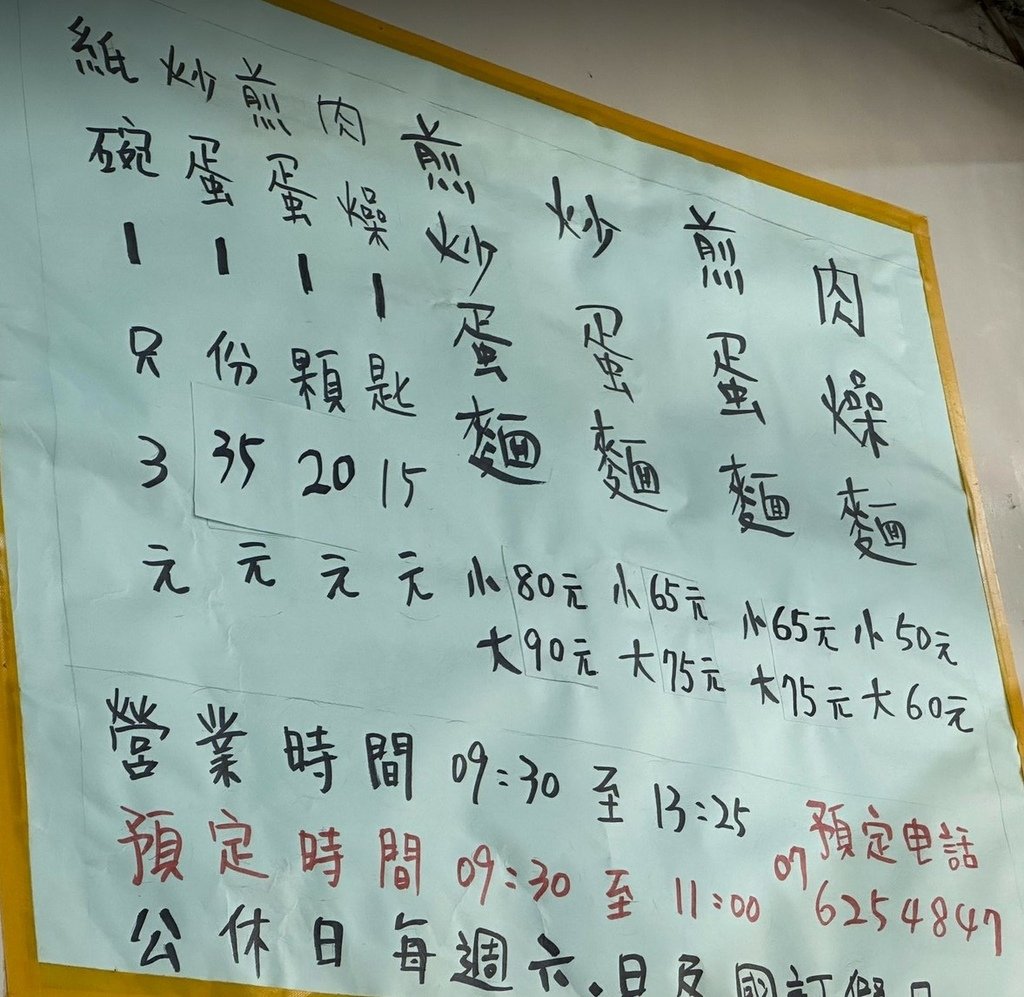 肉燥麵 小50元 大60元
煎蛋麵 小65元 大75元
炒蛋麵 小65元 大75元
煎炒蛋麵 小80元 大90元
肉燥1匙15元
煎蛋1顆20元
炒蛋1份35元
紙碗1只3元
營業時間 09:30 至 13:25
預定時間 09:30 至 11:00
預定电話
07 6254847
公休日每週六.日及國訂假日